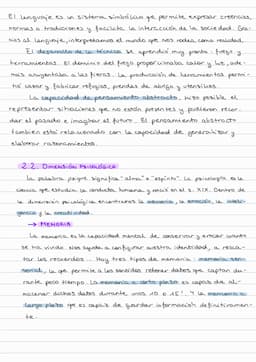 El lenguaje es un sistema simbólico que permite expresar creencias,
normas o tradiciones y facilita la interacción de la sociedad. Gra-
cias al lenguaje, interpretamos el mundo que nos rodea como realidad.
El desarrollo de la técnica se aprendió muy pronto: fuego y
herramientas. El dominio del fuego proporcionaba calor y luz, ade-
más ahuyentaba a las fieras. La producción de herramientas permi-
tió cazar y fabricar refugios, prendas de abrigo y utensilios.
La capacidad de pensamiento abstracto, hizo posible el
representar situaciones que no están presentes y pudieron recor-
dar el pasado e imaginar el futuro. El pensamiento abstracto
también está relacionado con la capacidad de generalizar y
elaborar razonamientos.
2.2. Dimensión Psicológica
La palabra psique significa "alma" o "espíritu". La psicología es la
ciencia que estudia la conducta humana y nació en el s. XIX. Dentro de
la dimensión psicológica encontramos la memoria, la emoción, la inteli-
gencia y la creatividad.
→ MEMORIA
La memoria es la capacidad mental de conservar y evocar cuanto
se ha vivido. Nos ayuda a configurar nuestra identidad, a resca-
tar los recuerdos... Hay tres tipos de memoria: memoria sen-
sorial, la que permite a los sentidos retener datos que captan du-
rante poco tiempo. La memoria a corto plazo es capaz de al-
macenar dichos datos durante unos 10 o 15'. Y la memoria a
largo plazo que es capaz de guardar información definitivamen-
te.